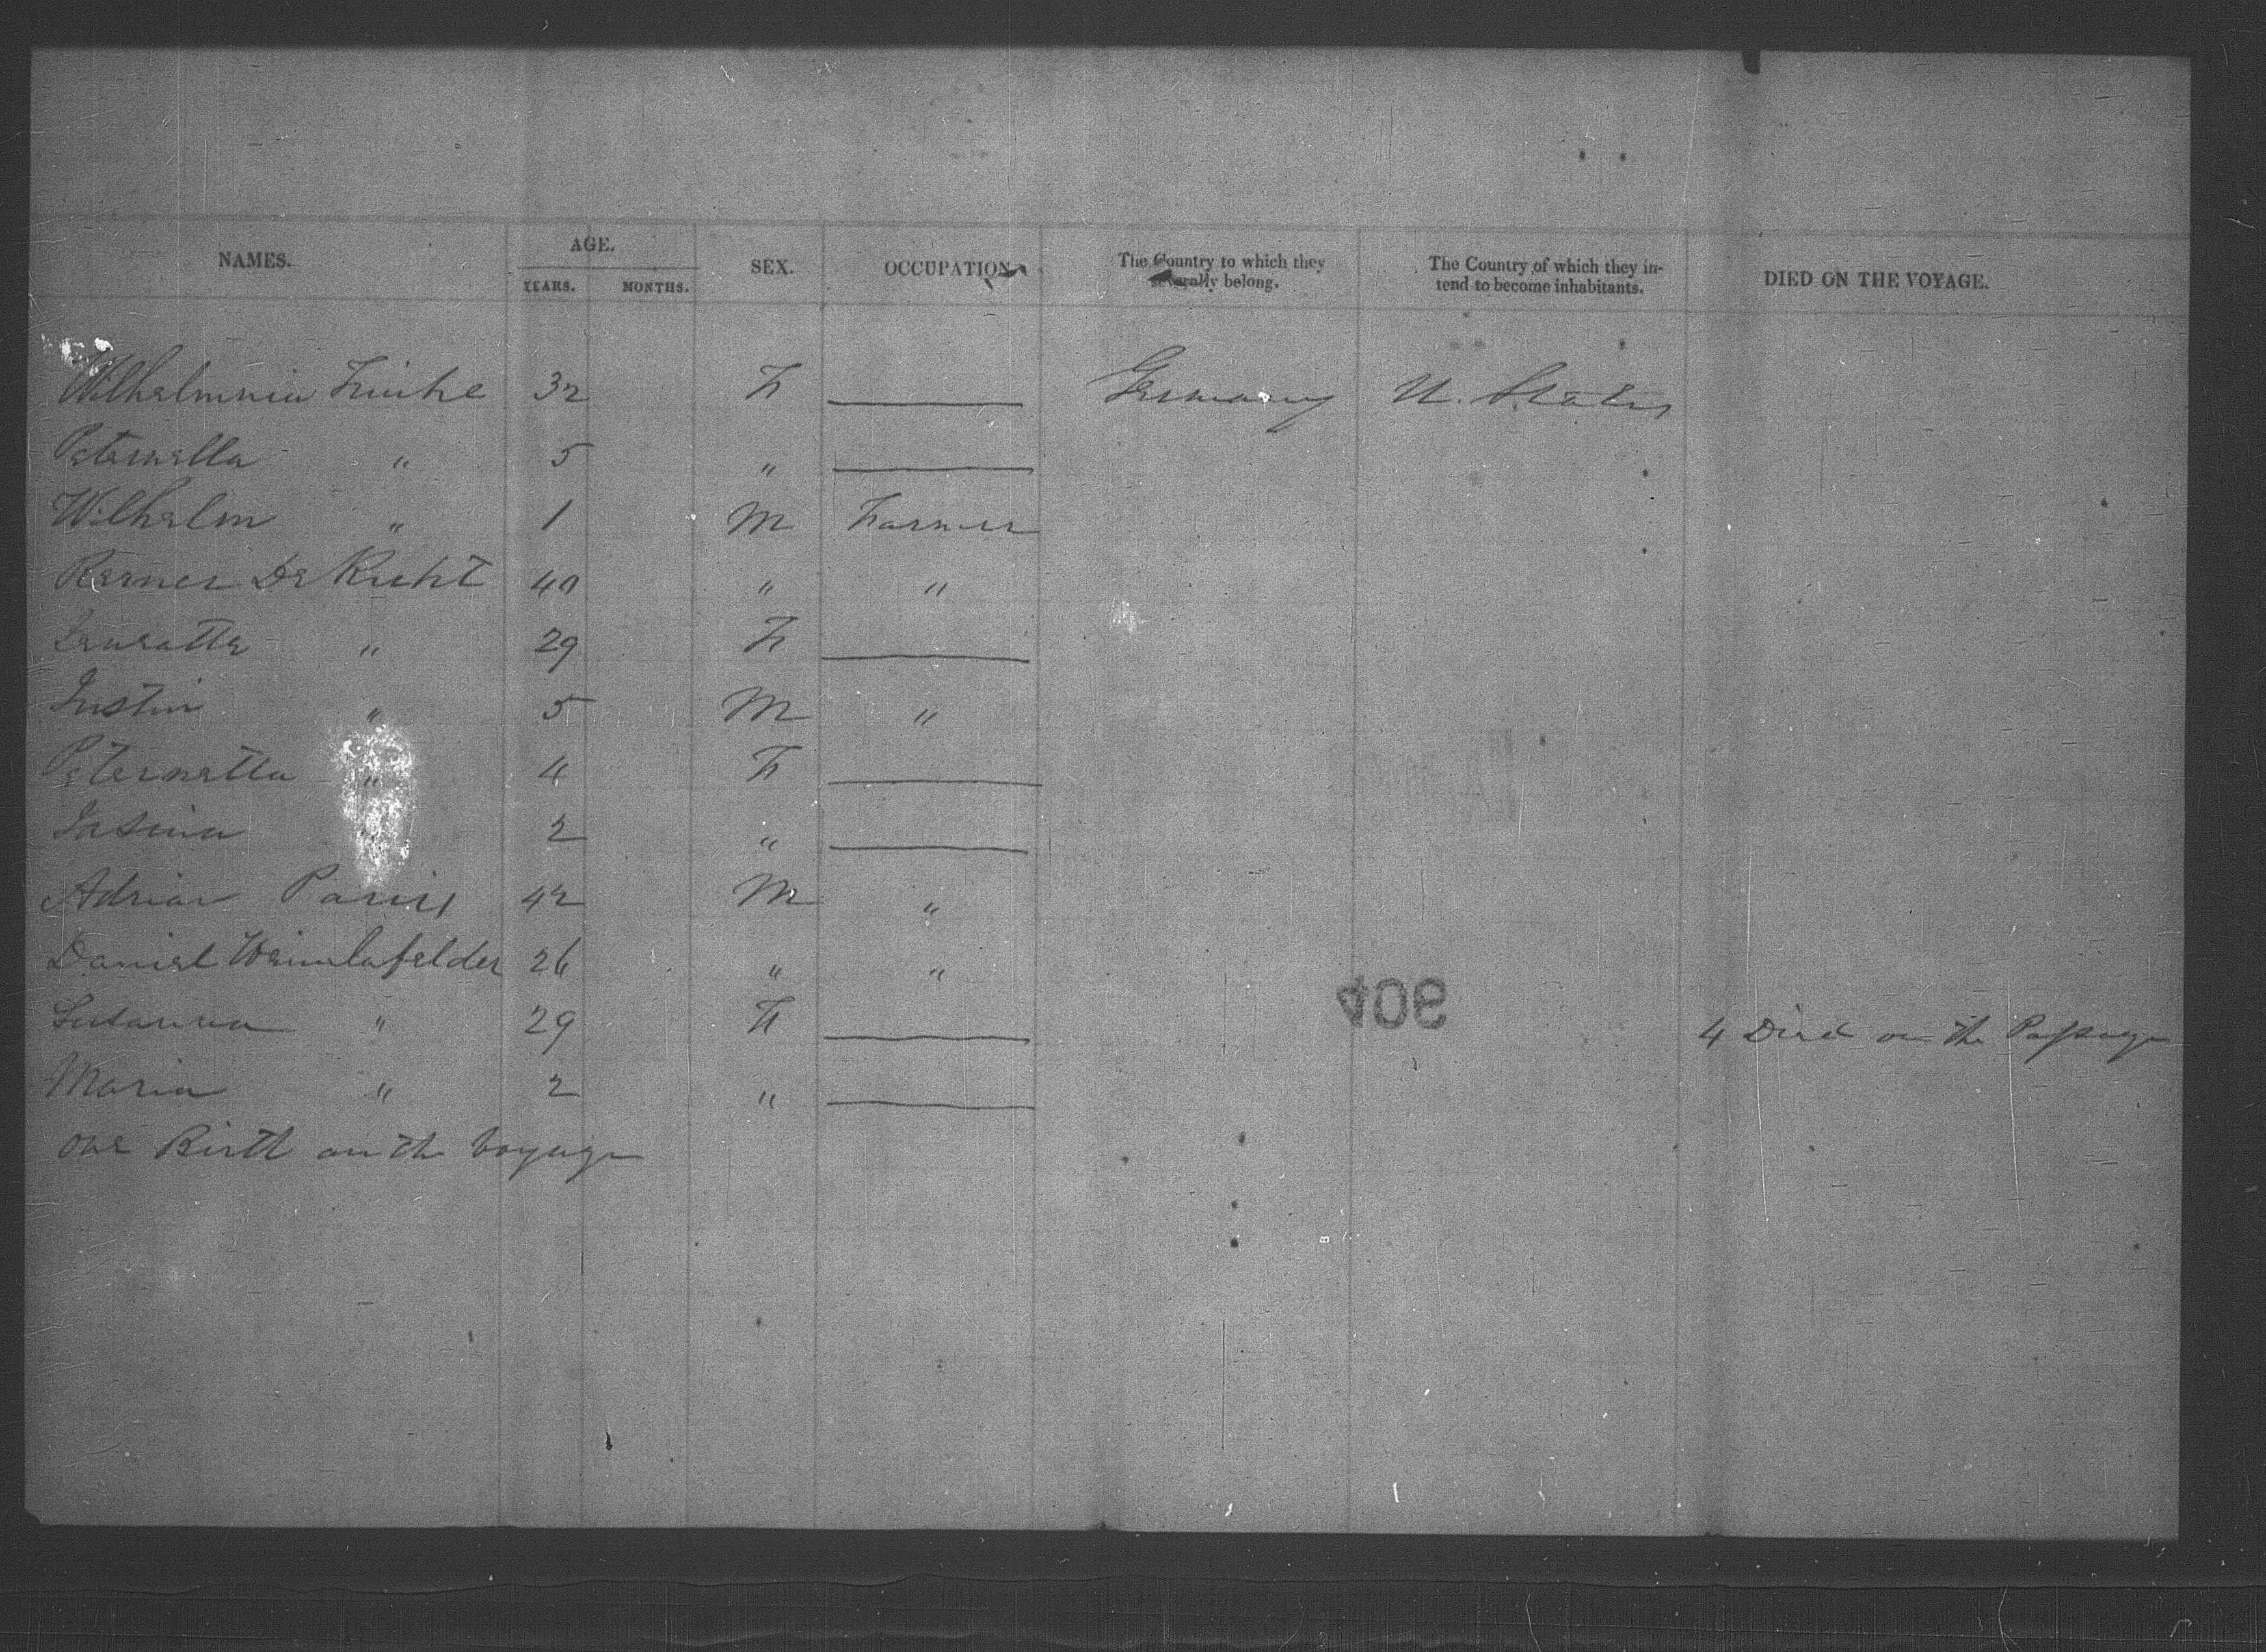 NAMES. AGE. SEX. OCCUPATION The Country to which they severally belong. The Country of which they intend to become inhabitants. DIED ON THE VOYAGE.
YEARS. MONTHS.
Wilhelminia 32 F Germany U. States
Peternella " 5 "
Wilhelm " 1 M Farmer
De 40 " "
" 29 F
Justin " 5 M "
Peternetta " 4 F
" 2 "
Adrian 42 M "
Daniel 26 " "
Susanna " 29 F 4 Died on the Passage
Maria " 2 "
One Birth on the Voyage